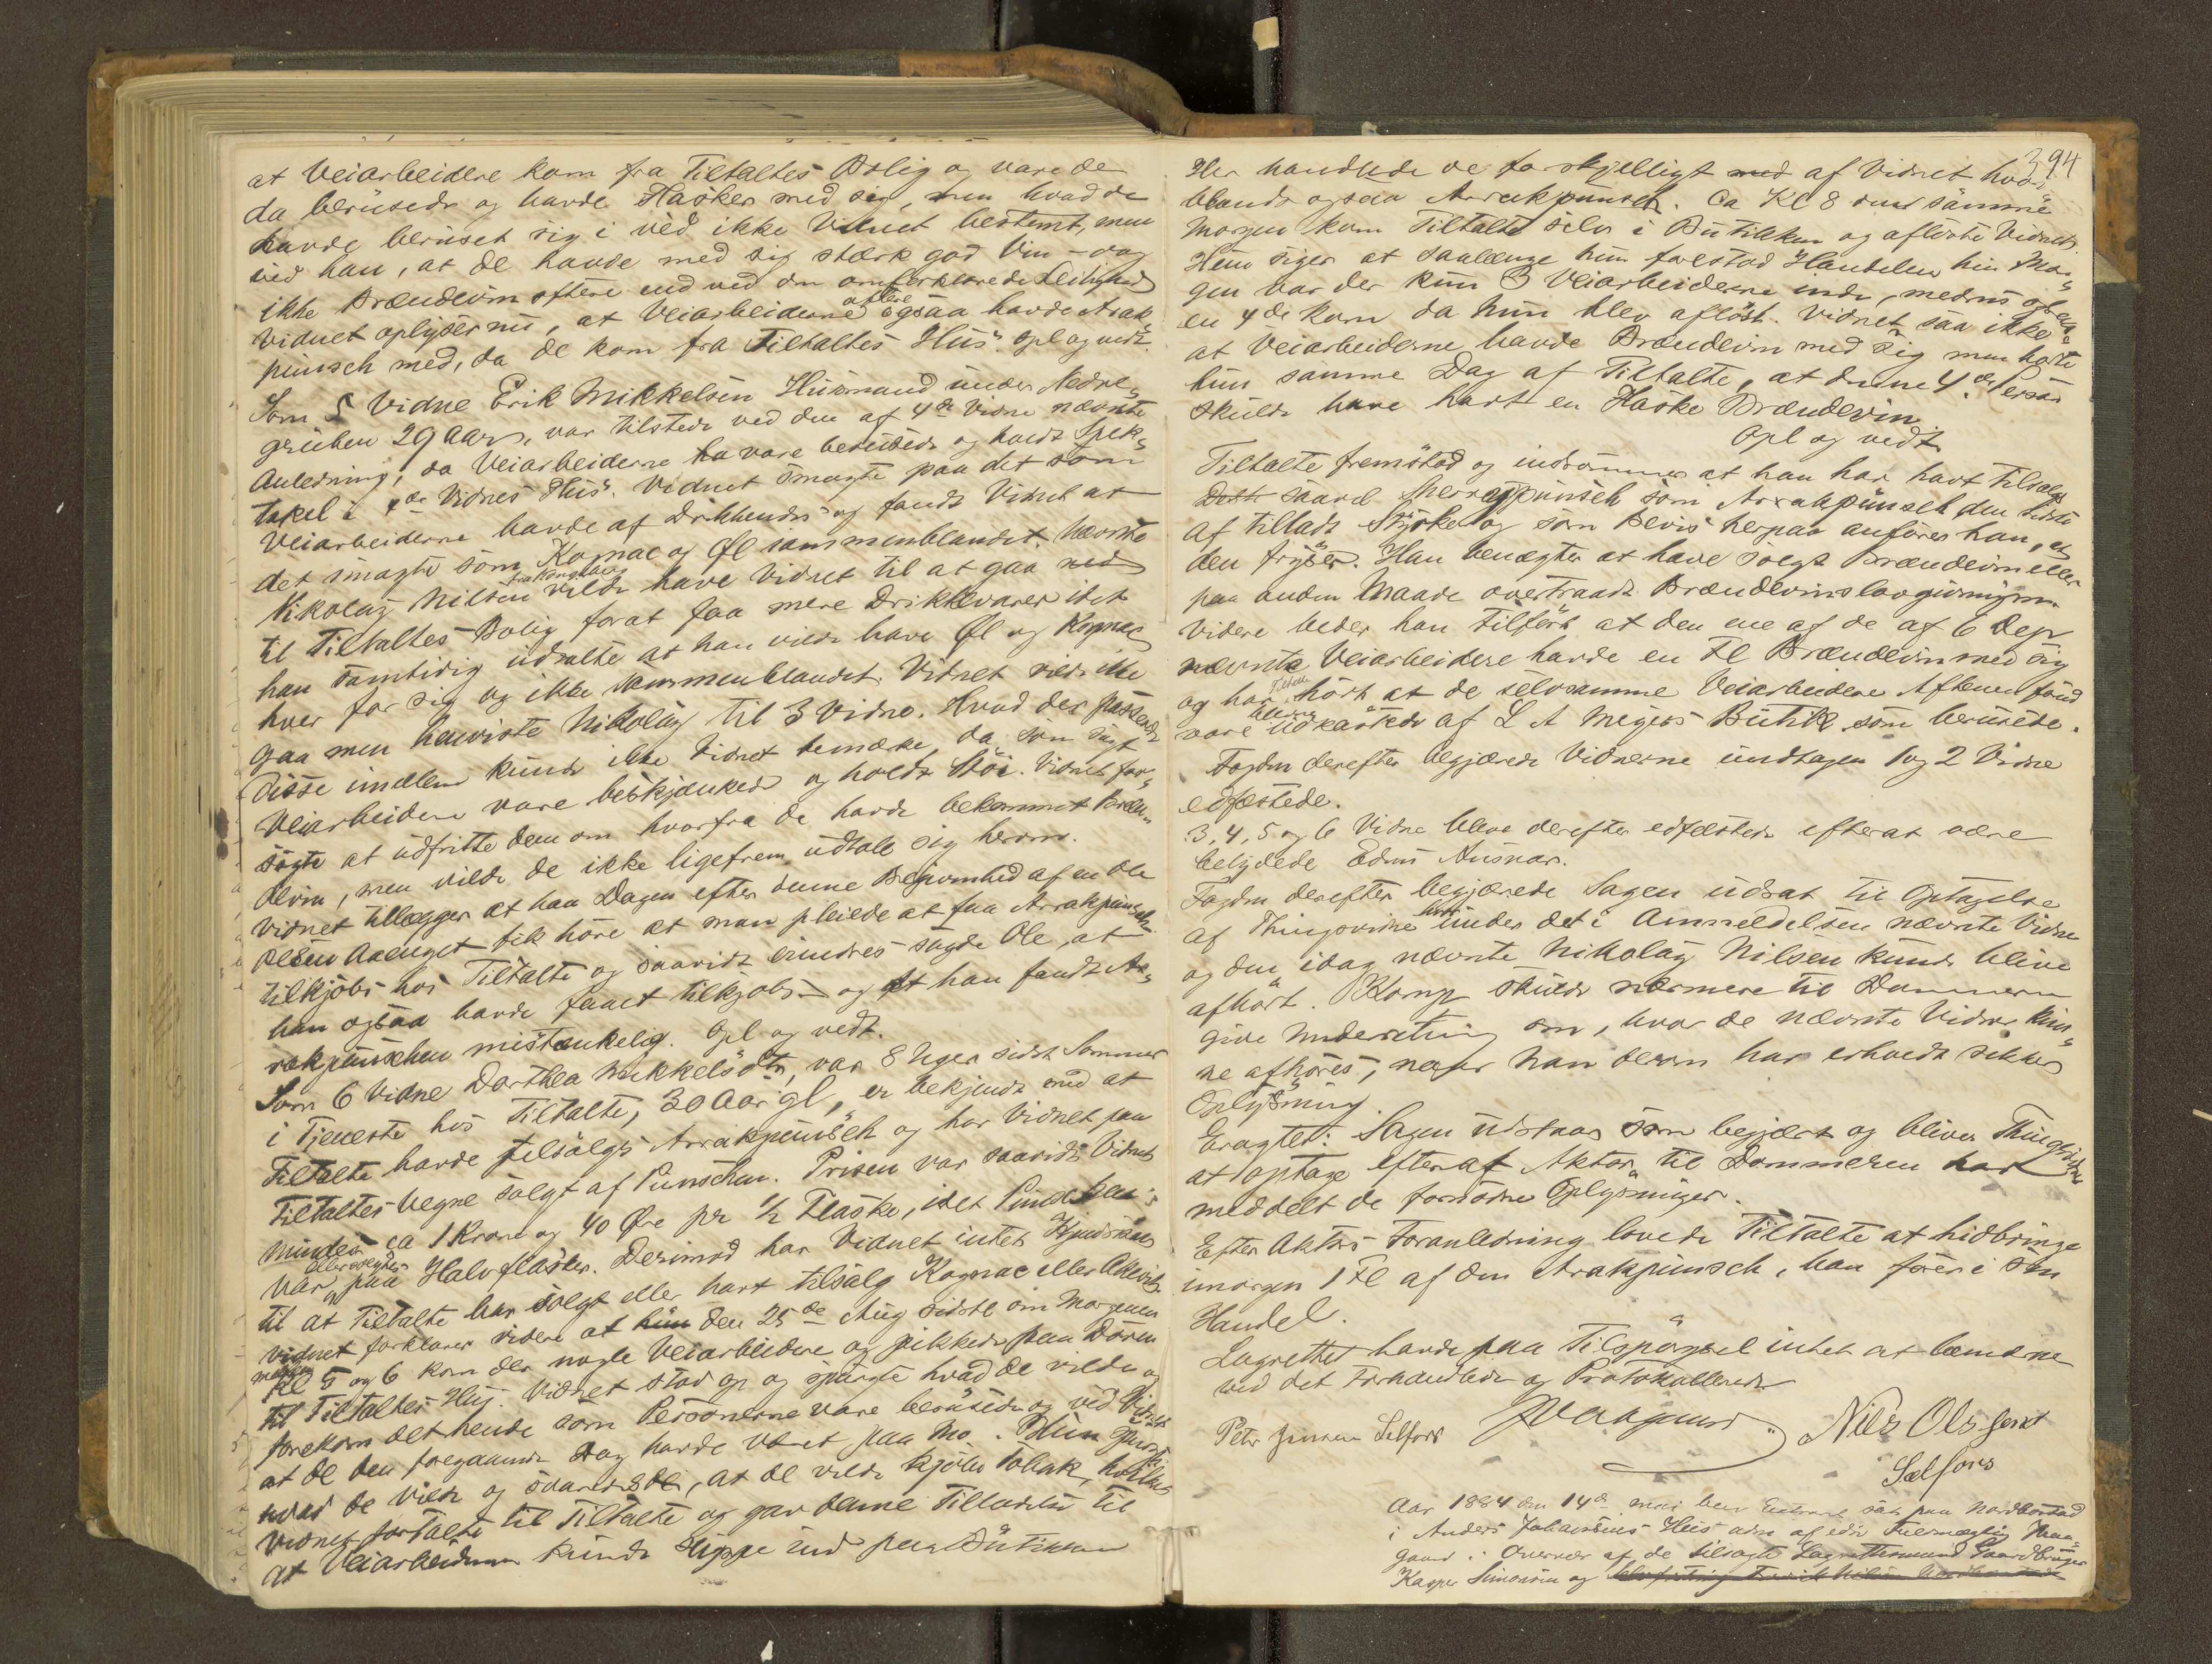 at Veiarbeidere kom fra Tiltaltes Bolig og vare de
da berusede og havde Flasker med sig, men hvad de
havde beruset sig i ved ikke Vidnet bestemt, men
ved han, at de havde med sig stærk god Vin – dog
ikke Brændevin oftere end ved den omforklarede Leilighed
Vidnet oplyser nu, at Veiarbeiderne oftere ogsaa havde Arak
punsch med, da de kom fra Tiltaltes Hus. Opl og vedt.
Som 5 Vidne Erik Mikkelsen Husmand under Nedre
gruben 29 Aar, var tilstede ved den af 4de Vidne nævnte
Anledning, da Veiarbeiderne vare berusede og holdt Spek-
takel i 4de Vidnes Hus. Vidnet smagte paa det som
Veiarbeiderne havde af Drikkendes og fandt Vidnet at
det smagte som Kognac og Øl sammenblandet. Nævnte
Nikolay Nilsen fra Kongsberg vilde have Vidnet til at gaa ned
til Tiltaltes Bolig forat faa mere Drikkevarer idet
han samtidig udtalte at han vilde have Øl og Kognac
hver for sig og ikke sammenblandet. Vidnet vilde ikke
gaa men henviste Nikolay til 3 Vidne. Hvad der passerede
disse imellem kunde ikke Vidnet bemærke, da som sagt
Veiarbeidere vare beskjænkede og holdt Støi. Vidnet for-
søgte at udfritte dem om hvorfra de havde bekommet Bræn-
devin, men vilde de ikke ligefrem udtale sig herom.
Vidnet tillægger at han Dagen efter denne Begivenhed af en Ole
Olsen Aaenget fik høre at man pleiede at faa Arrakpunsch
tilkjøbs hos Tiltalte og saavidt erindres sagde Ole, at
han ogsaa havde faaet tilkjøbs – og at han fandt Ar-
rakpunschen mistænkelig. Opl og vedt.
Som 6 Vidne Dorthea Mikkelsdtr, var 8 Uger sidst Sommer
i Tjeneste hos Tiltalte, 30 Aar gl, er bekjendt med at
Tiltalte havde tilsalgs Arrakpunsch og har Vidnet paa
Tiltaltes Vegne solgt af Punschen. Prisen var saavidt Vidnet
mindes ca 1 Krone og 40 Øre pr 1/2 Flaske, idet Punschen
var paa Halvflasker. Derimod har Vidnet intet Kjendskab
til at Tiltalte har solgt eller havt tilsalg Kognac eller Akevit.
Vidnet forklarer videre at den 25de Aug sidstl om Morgenen
mellem Kl 5 og 6 kom der nogle Veiarbeidere og pikkede paa Døren
til Tiltaltes Hus. Vidnet stod op og spurgte hvad de vilde og
forekom det hende som Personerne vare berusede og ved Vidnet
at de den foregaaende Dag havde været paa Mo. Hun spurgte
hvad de vilde og svarede de, at de vilde kjøbe Tobak, hvilket
Vidnet fortalte til Tiltalte og gav denne Tilladelse til
at Veiarbeiderne kunde slippe ind paa Butikken
394
Her handlede de forskjelligt af Vidnet hvor-
blandt ogsaa Arrakpunsch. Ca Kl 8 samme
Morgen kom Tiltalte selv i Butikken og afløste Vidnet.
Hun siger at saalænge hun forestod Handelen hin Mor-
gen var der kun 3 Veiarbeidere inde, medens
en 4de kom da hun blev afløst. Vidnet saa ikke
at Veiarbeiderne havde Brændevin med sig men hørte
hun samme Dag af Tiltalte, at denne 4de Person
skulde have havt en Flaske Brændevin
Opl og vedt.
Tiltalte fremstod og indrømmer at han har havt tilsalgs
saavel Sherrypunsch som Arrakpunsch den sidste
af tilladt Styrke og som Bevis herpaa anføres han, at
den fryser. Han benægter at have solgt Brændevin eller
paa anden Maade overtraadt Brændevinslovgivningen.
Videre beder han tilført at den ene af de af 6 Dep
nævnte Veiarbeidere havde en Fl Brændevin med sig
og har Tiltalte hørt at de selvsamme Veiarbeidere Aftenen forud
vare blevne udkastede af L A Meyers Butik som berusede.
Fogden derefter begjærede Vidnerne undtagen 1 og 2 Vidne
edfæstede.
3, 4, 5 og 6 Vidne bleve derefter edfæstede efterat være
betydede Edens Ansvar.
Fogden derefter begjærede Sagen udsat til Optagelse
af Thingsvidne under det i Anmeldelsen nævnte Vidne
og den idag nævnte Nikolay Nilsen kunde blive
afhørt. Komp skulde nærmere til Dommeren
give Underretning om, hvor de nævnte Vidner kun-
ne afhøres, naar han derom har erholdt sikker
Oplysning.
Eragtet: Sagen udstaaes som begjært og bliver Thingsvidne
at optage efterat Aktor til Dommeren har
meddelt de fornødne Oplysninger.
Efter Aktors Foranledning lovede Tiltalte at hidbringe
imorgen 1 Fl af den Arakpunsch, han fører i sin
Handel.
Lagrettet havde paa Tilspørgsel intet at bemærke
ved det Forhandlede og Protokollerede
Peter Jensen Selfors
Nils Olsen
Selfors
Aar 1884 den 14de Mai blev Extraret sat paa Nordbostad
i Anders Johansens Hus adm af edsv Fuldmægtig Haa-
gaard i Overvær af de tilsagte Lagrettesmænd Gaardbruger
Kasper Simonsen og